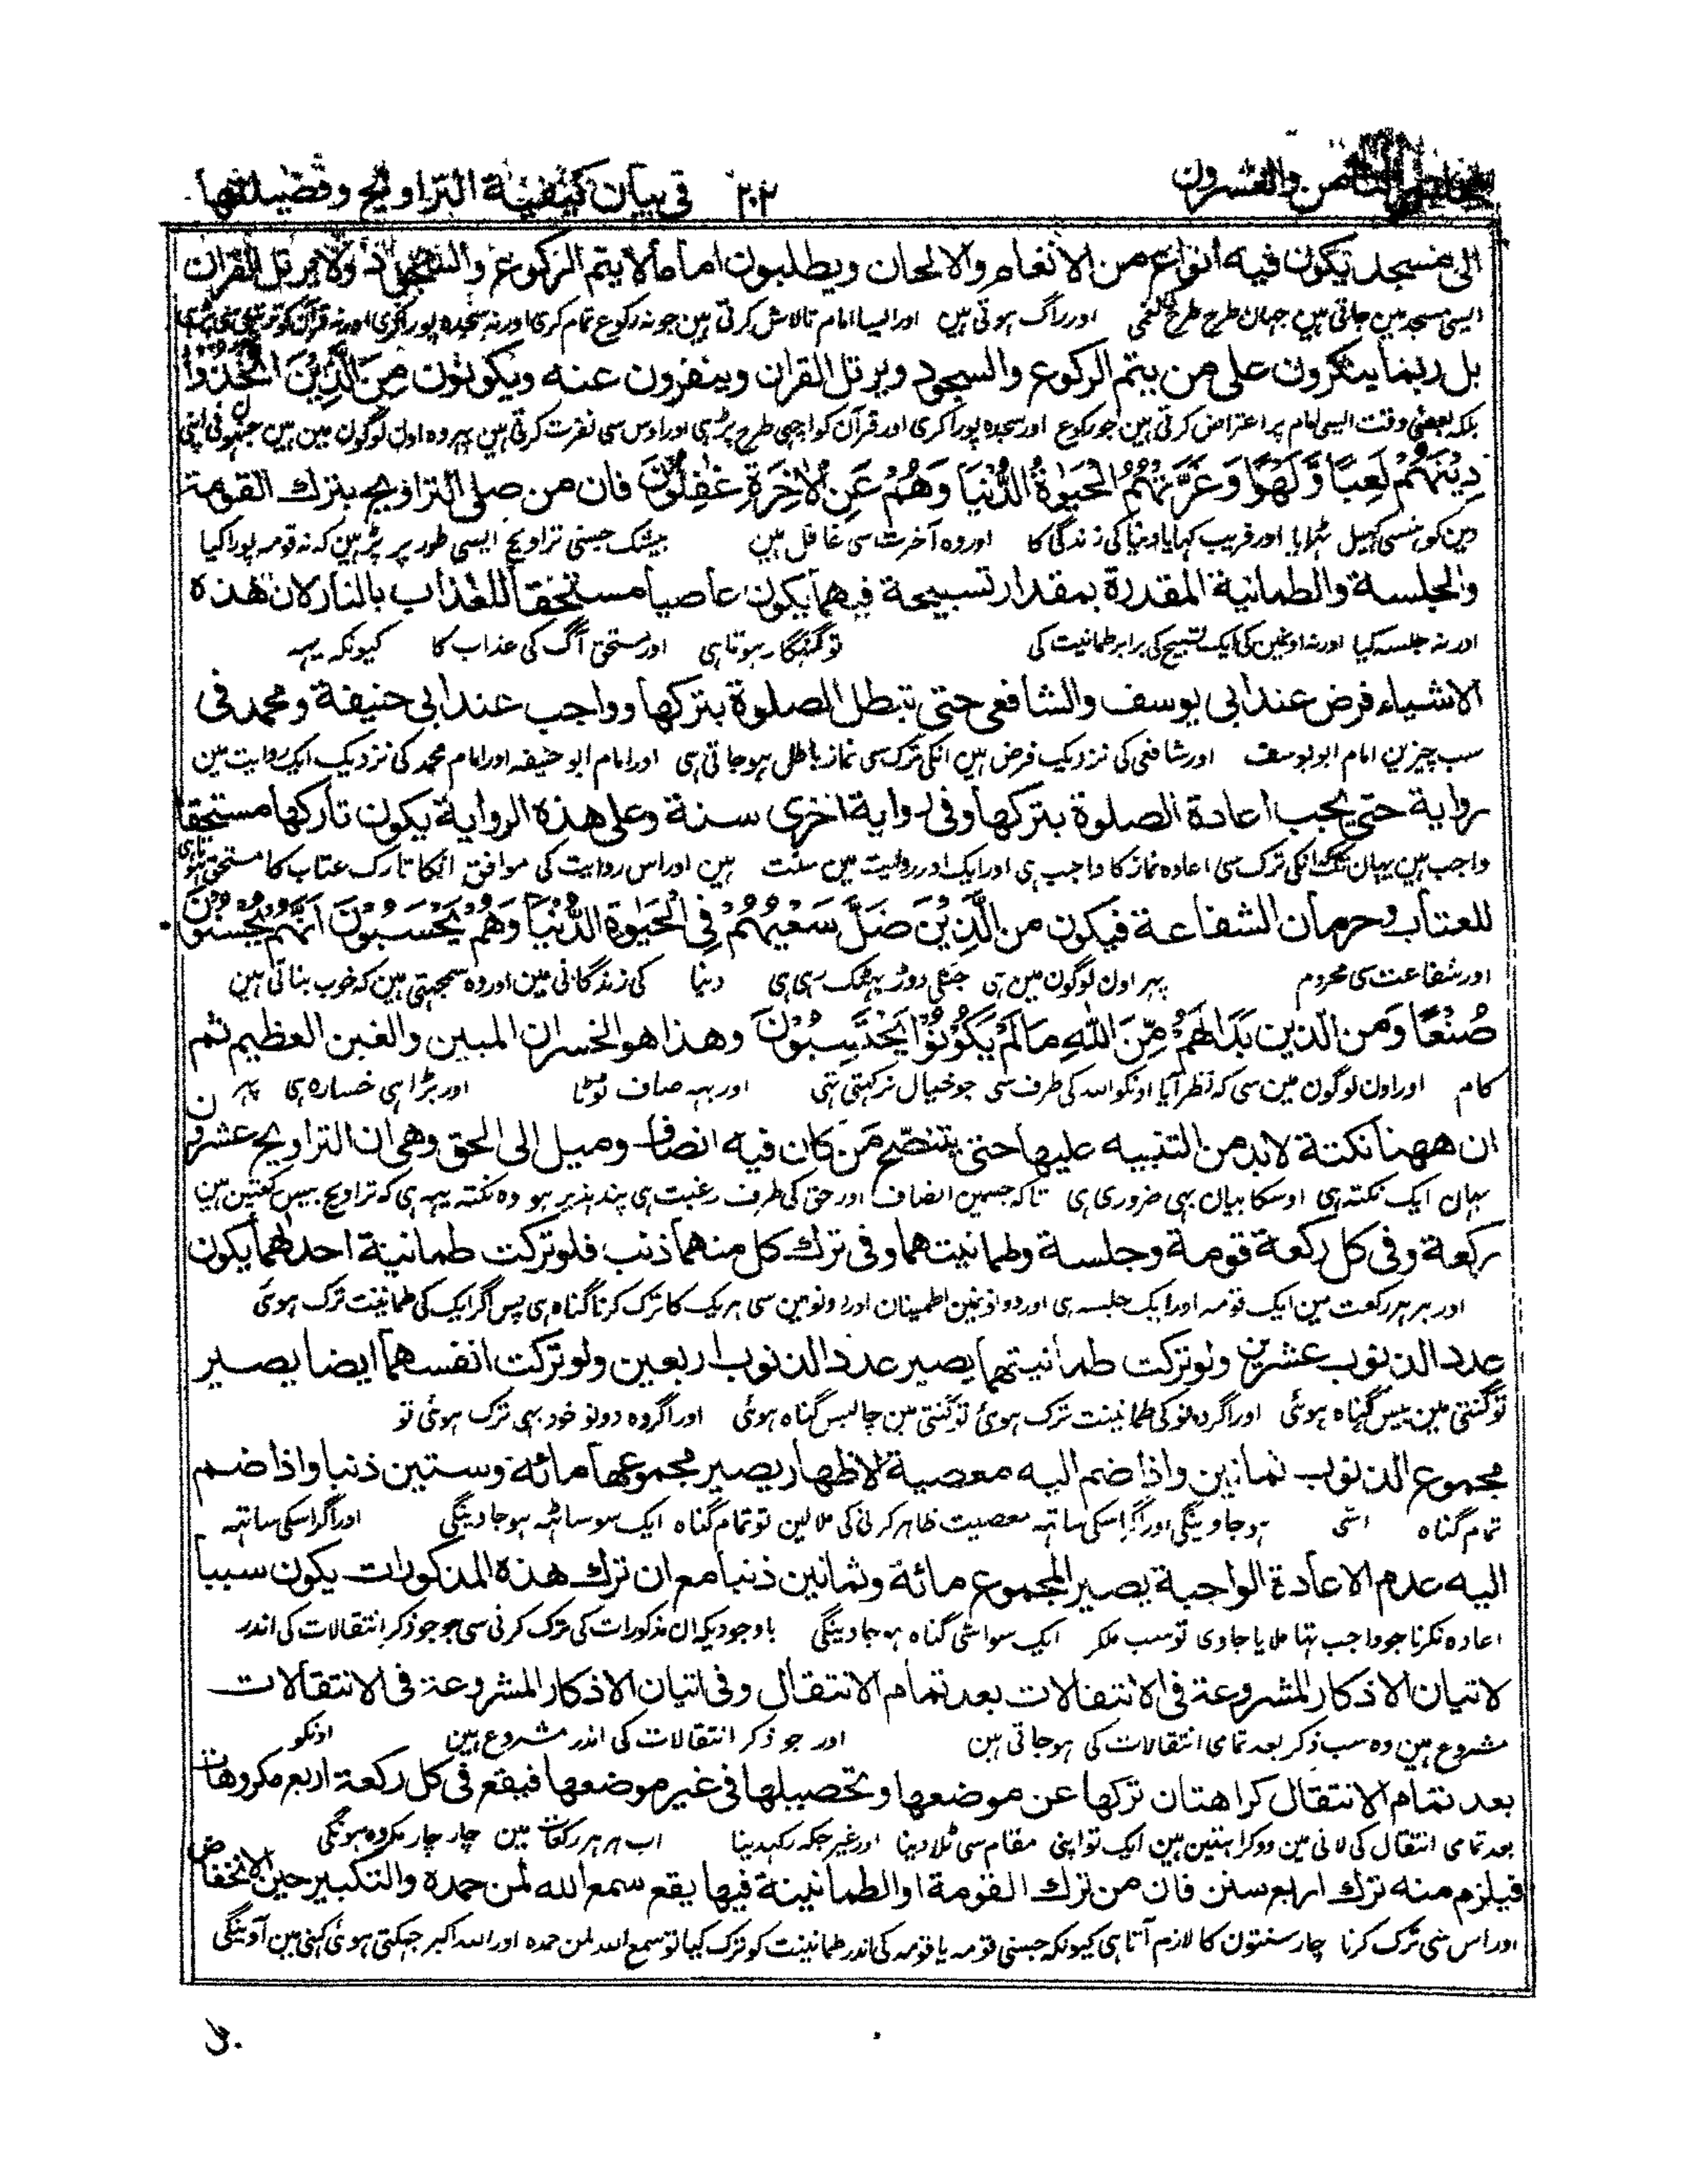 المجلس الثامن والعشرون ٢٠٢ فی بیان کیفیة التراویح وفضیلتها
الی مسجد یکون فیه انواع من الانغام والالحان ویطلبون اماما لا یتم الرکوع والسجود ولا یرتل القران
ایسی مسجد مین جاتی ہین جہان طرح طرح کی نغمی اور راگ ہوتی ہین اور ایسا امام تلاش کرتی ہین جو نہ رکوع تمام کری اور نہ سجدہ پورا کری اور نہ قرآن کو ترتیل سی پڑہی
بل ربما ینکرون علی من یتم الرکوع والسجود ویرتل القران وینفرون عنه ویکونون مِنَ الَّذِیْنَ اتَّخَذُوْا
بلکہ بعضی وقت ایسی امام پر اعتراض کرتی ہین جو رکوع اور سجدہ پورا کری اور قرآن کو اچہی طرح پڑہی اور اوس سی نفرت کرتی ہین پہر وہ اون لوگون مین ہین جنہونی اپنی
دِیْنَهُمْ لَعِبًا وَّلَهْوًا وَغَرَّتْهُمُ الْحَیٰوةُ الدُّنْیَا وَهُمْ عَنِ الْاٰخِرَةِ غٰفِلُوْنَ فان من صلی التراویح بترك القومة
دین کو ہنسی کہیل ٹہرایا اور فریب کہایا دنیا کی زندگی کا اور وہ آخرت سی غافل ہین بیشک جسنی تراویح ایسی طور پر پڑہین کہ نہ قومہ پورا کیا
والجلسة والطمانیة المقدرة بمقدار تسبیحة فیهما یکون عاصیا مستحقا للعذاب بالنار لان هذه
اور نہ جلسہ کیا اور نہ اونمین کی ایک تسبیح کی برابر طمانیت کی تو گنہگار ہوتا ہی اور مستحق آگ کی عذاب کا کیونکہ یہہ
الاشیاء فرض عند ابی یوسف والشافعی حتی تبطل الصلوة بترکها وواجب عند ابی حنیفة ومحمد فی
سب چیزین امام ابو یوسف اور شافعی کی نزدیک فرض ہین انکی ترک سی نماز باطل ہو جاتی ہی اور امام ابو حنیفہ اور امام محمد کی نزدیک ایک روایت مین
روایة حتی یجب اعادة الصلوة بترکها وفی روایة اخری سنة وعلی هذه الروایة یکون تارکها مستحقا
واجب ہین یہان تک کہ انکی ترک سی اعادہ نماز کا واجب ہی اور ایک اور روایت مین سنت ہین اور اس روایت کی موافق انکا تارک عتاب کا مستحق ہوتا ہی
للعتاب وحرمان الشفاعة فیکون من الَّذِیْنَ ضَلَّ سَعْیُهُمْ فِی الْحَیٰوةِ الدُّنْیَا وَهُمْ یَحْسَبُوْنَ اَنَّهُمْ یُحْسِنُوْنَ
اور شفاعت سی محروم پہر اون لوگون مین ہی جنکی دوڑ بہٹک رہی ہی دنیا کی زندگانی مین اور وہ سمجہتی ہین کہ خوب بناتی ہین
صُنْعًا وَمن الذین بَدَا لَهُمْ مِّنَ اللّٰهِ مَا لَمْ یَکُوْنُوْا یَحْتَسِبُوْنَ وهذا هو الخسران المبین والغبن العظیم ثم
کام اور اون لوگون مین سی کہ نظر آیا اونکو اللہ کی طرف سی جو خیال نرکہتی تہی اور یہہ صاف ٹوٹا اور بڑا ہی خسارہ ہی پہر
ان ههنا نکتة لابد من التنبیه علیها حتی یتنصح من کان فیه انصاف ومیل الی الحق وهی ان التراویح عشرون
یہان ایک نکتہ ہی اوسکا بیان بہی ضروری ہی تاکہ جسمین انصاف اور حق کی طرف رغبت ہی پند پذیر ہو وہ نکتہ یہہ ہی کہ تراویح بیس رکعتین ہین
رکعة وفی کل رکعة قومة وجلسة وطمانیتهما وفی ترك کل منهما ذنب فلو ترکت طمانینة احدٰهما یکون
اور ہر ہر رکعت مین ایک قومہ اور ایک جلسہ ہی اور دونون مین اطمینان اور دونو مین سی ہر یک کا ترک کرنا گناہ ہی پس اگر ایک کی طمانینت ترک ہوئی
عدد الذنوب عشرین ولو ترکت طمانیتهما یصیر عدد الذنوب اربعین ولو ترکت انفسهما ایضا یصیر
تو گنتی مین بیس گناہ ہوئی اور اگر دونو کی طمانینت ترک ہوئی تو گنتی مین چالیس گناہ ہوئی اور اگر وہ دونو خود بہی ترک ہوئی تو
مجموع الذنوب ثمانین واذا ضم الیه معصیة الاظهار یصیر مجموعها مائة وستین ذنبا واذا ضم
تمام گناہ اسی ہو جاوینگی اور اگر اسکی ساتہہ معصیت ظاہر کرنی کی ملا لین تو تمام گناہ ایک سو ساٹہہ ہو جاوینگی اور اگر اسکی ساتہہ
الیه عدم الاعادة الواجبة یصیر المجموع مائة وثمانین ذنبا مع ان ترك هذه المذکورات یکون سببا
اعادہ نکرنا جو واجب تہا ملایا جاوی تو سب ملکر ایک سو اسی گناہ ہو جاوینگی باوجودیکہ ان مذکورات کی ترک کرنی سی جو جو ذکر انتقالات کی اندر
لاتیان الاذکار المشروعة فی الانتقالات بعد تمام الانتقال وفی اتیان الاذکار المشروعة فی الانتقالات
مشروع ہین وہ سب ذکر بعد تمامی انتقالات کی ہو جاتی ہین اور جو ذکر انتقالات کی اندر مشروع ہین اونکو
بعد تمام الانتقال کراهتان ترکها عن موضعها وتحصیلها فی غیر موضعها فیقع فی کل رکعة اربع مکروهات
بعد تمامی انتقال کی لانی مین دو کراہتین ہین ایک تو اپنی مقام سی ٹلا دینا اور غیر جگہ رکہدینا اب ہر ہر رکعات مین چار چار مکروہ ہونگی
فیلزم منه ترك اربع سنن فان من ترك القومة او الطمانینة فیها یقع سمع الله لمن حمده والتکبیر حین الانخفاض
اور اس سی ترک کرنا چار سنتون کا لازم آتا ہی کیونکہ جسنی قومہ یا قومہ کی اندر طمانینت کو ترک کیا تو سمع اللہ لمن حمدہ اور اللہ اکبر جہکتی ہوئی کہنی مین آوینگی